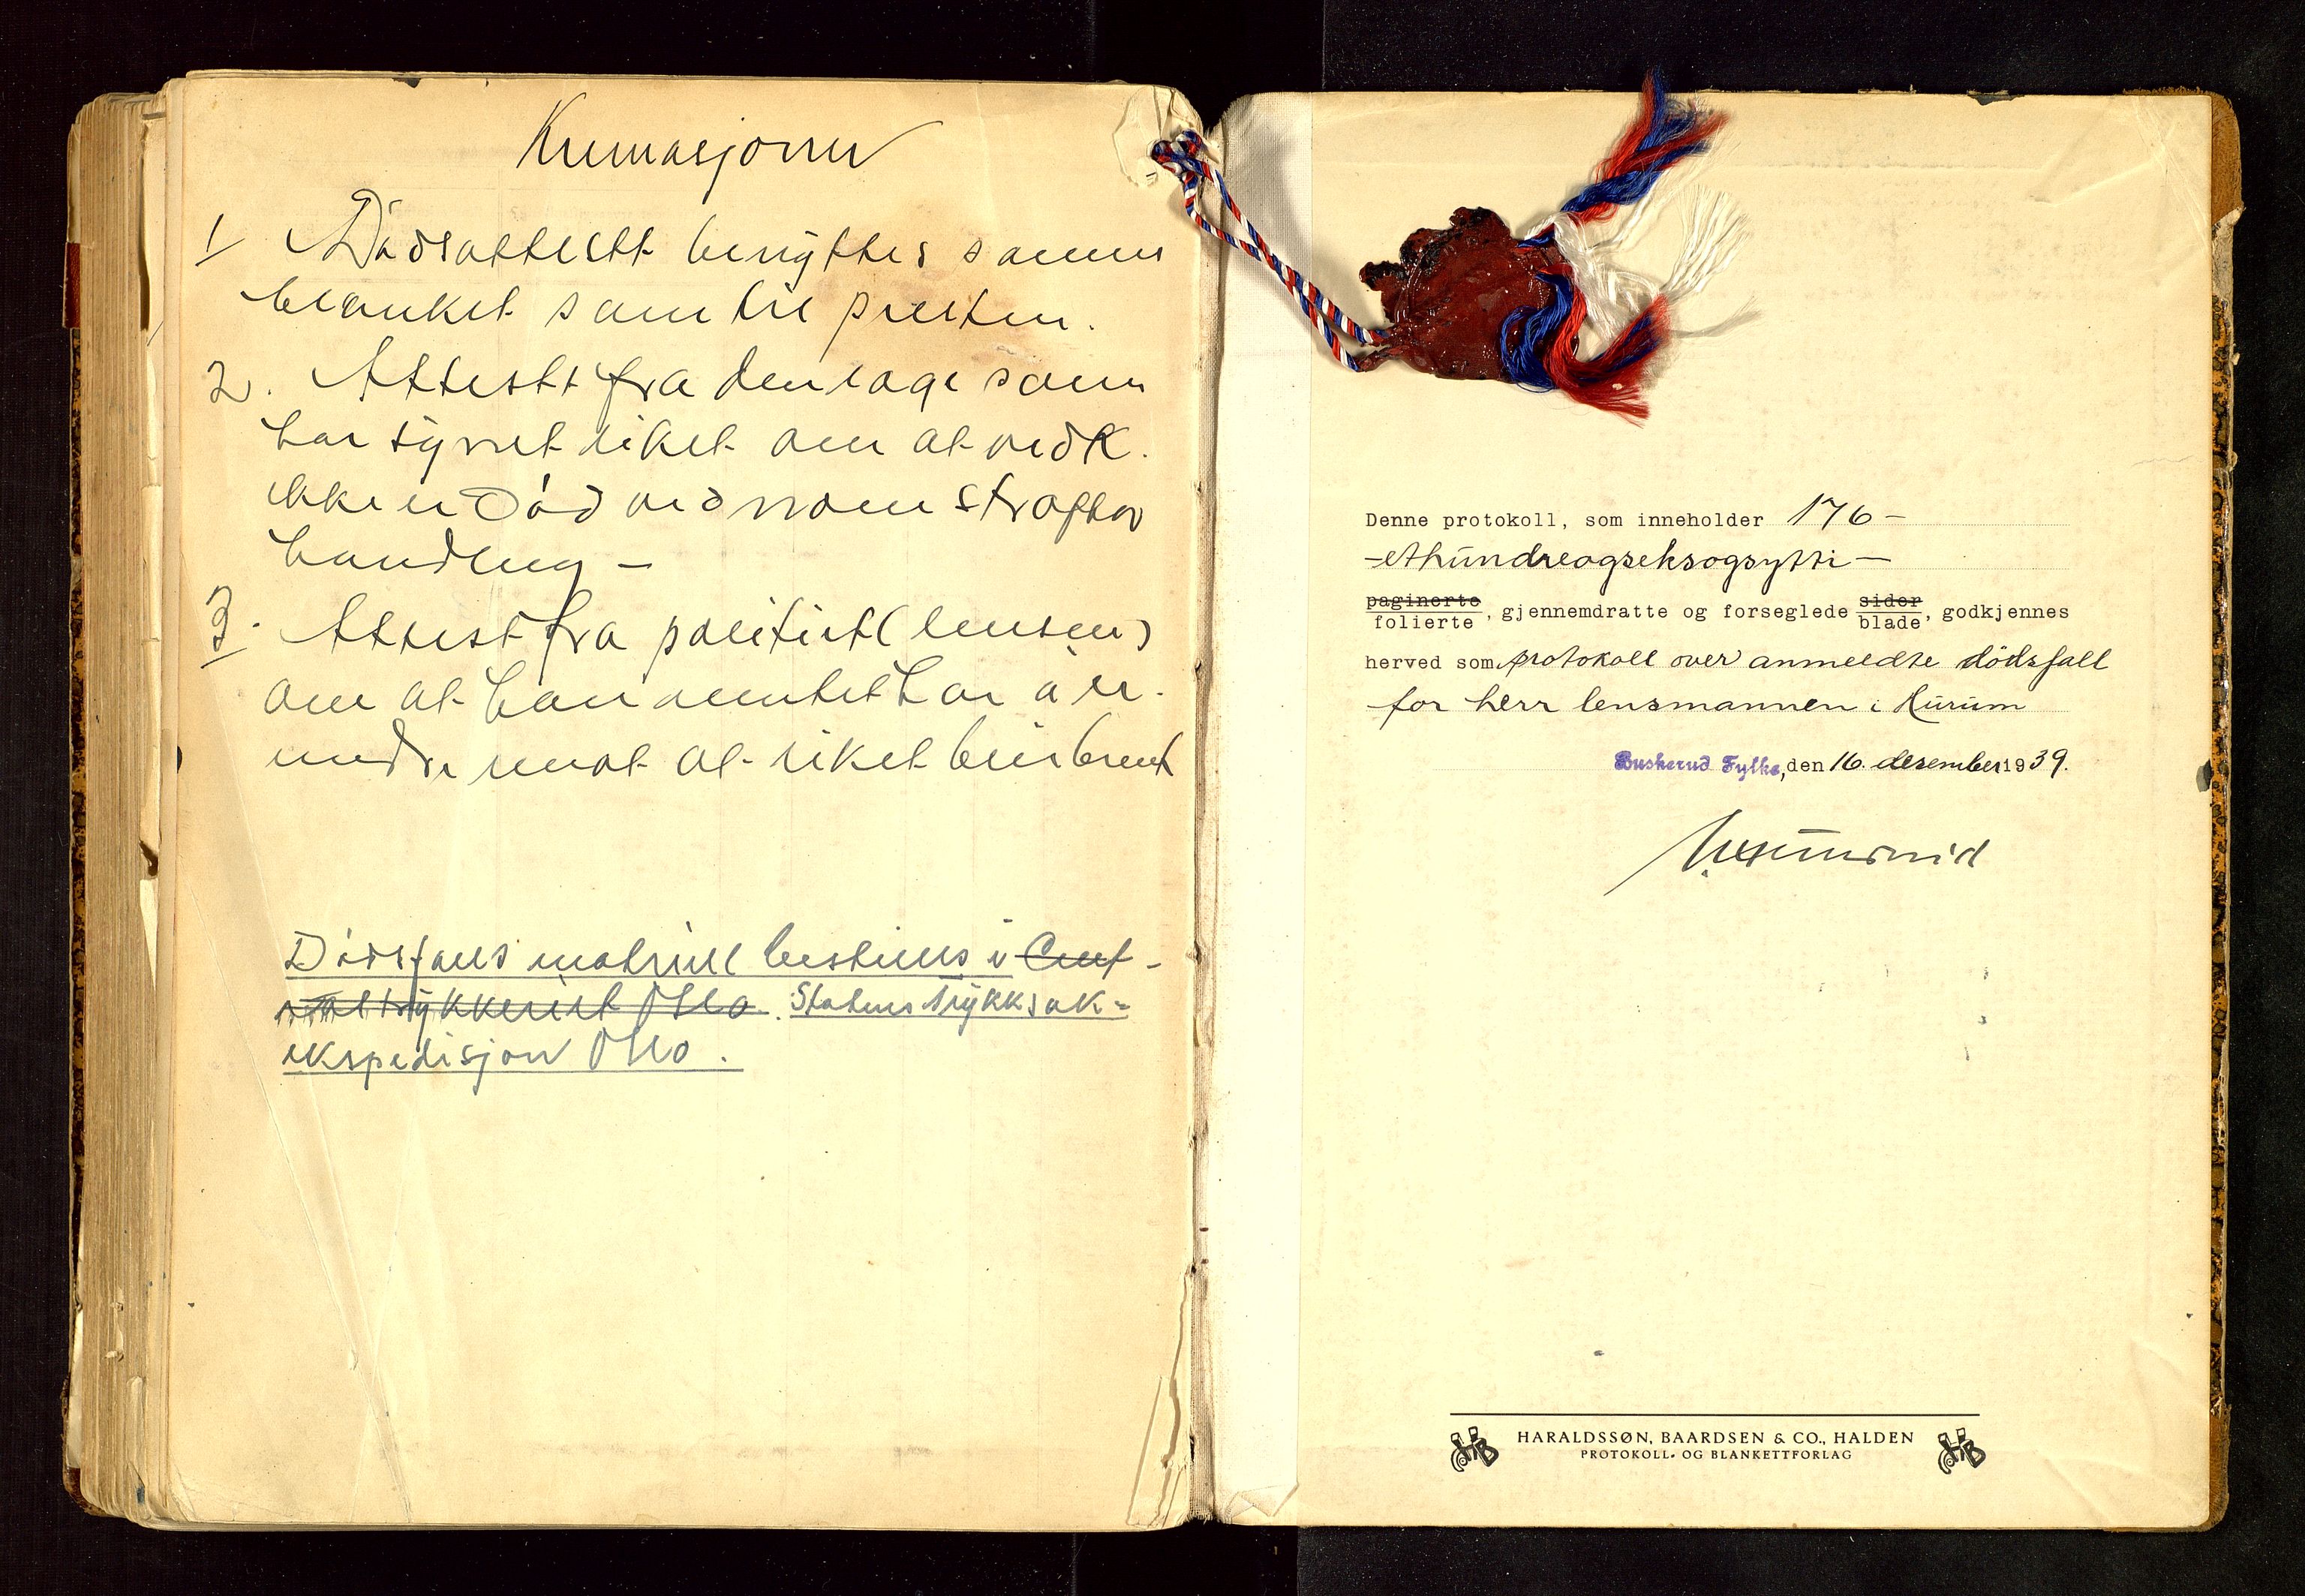 Kremasjoner
1/ Dødsattestt benyttes samme
blanket som til presten.
2. Attestt fra den læge som
har synet liket om at vedk.
ikke er død ved noen straffbar
handling -
3. Attest fra politiet (lensm)
om at han intet har å er-
indre mot at liket blir brent
Dødsfalls matriell bestilles i Cent-
raltrykkeriet Oslo. Statens trykksak-
ekspedisjon Oslo.
Denne protokoll, som inneholder 176 -
- ethundreogseksogsytti -
paginerte / folierte, gjennemdratte og forseglede sider / blade, godkjennes
herved som protokoll over anmeldte dødsfall
for herr lensmannen i Hurum
Buskerud Fylke, den 16. desember 1939.
HARALDSSØN, BAARDSEN & CO., HALDEN
PROTOKOLL- OG BLANKETTFORLAG